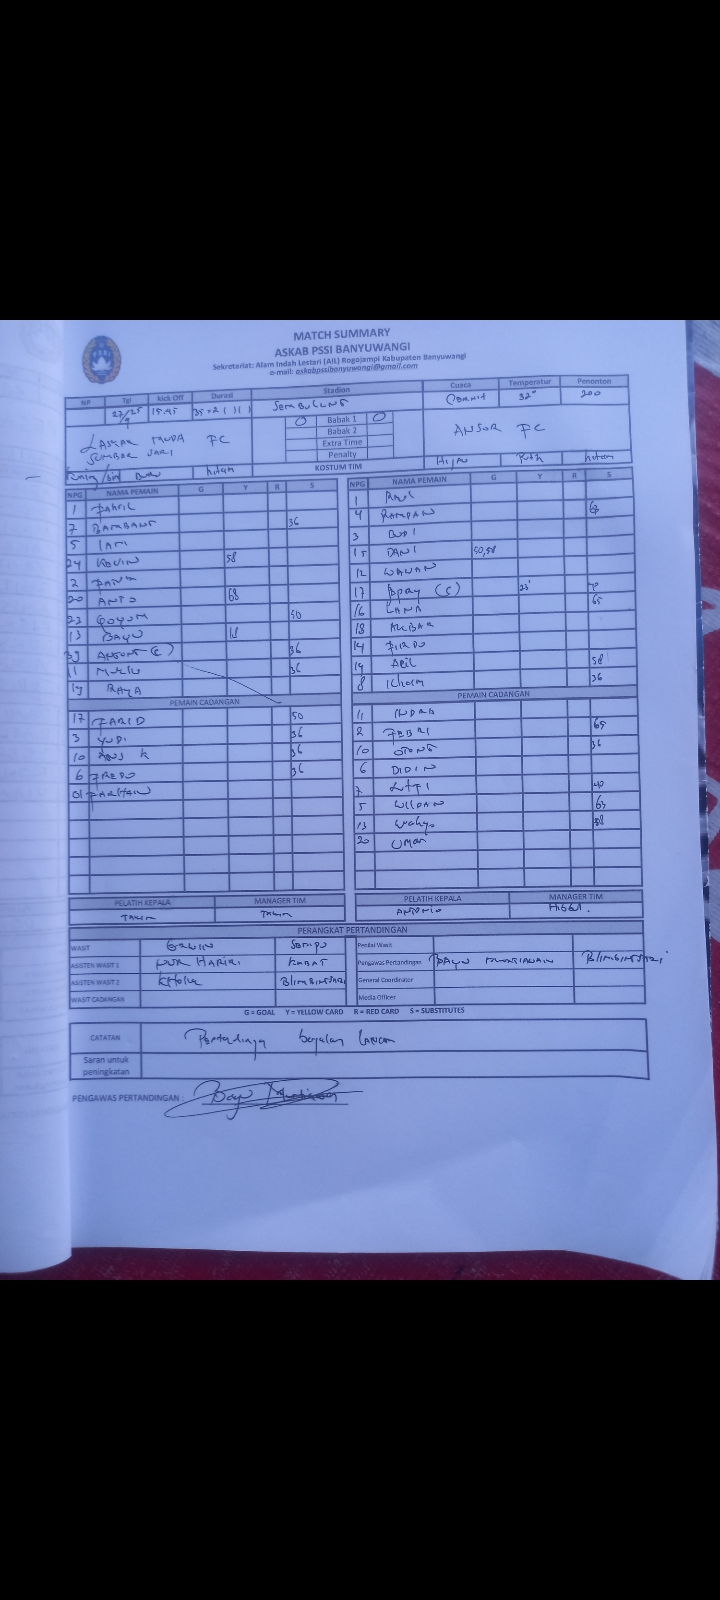 MATCH SUMMARY
ASKAB PSSI BANYUWANGI
Sekretariat: Alam Indah Lestari (AIL) Rogojampi Kabupaten Banyuwangi
e-mail: askabpssibanyuwangi@gmail.com
NP Tgl Kick Off Durasi Stadion Cuaca Temperatur Penonton
27/25 15.45 35 x 2 SEMBULUNG 32° 200
9
LASKAR MUDA FC 0 Babak 1 0 ANSOR FC
SUMBER SARI Babak 2
Extra Time
Penalty
Biru hitam KOSTUM TIM Hijau Putih hitam
NPG NAMA PEMAIN G Y R S NPG NAMA PEMAIN G Y R S
1 1
7 BAMBANG 36 4 RAMDAN
5 3 BUDI
24 KEVIN 58 15 DANI 50,58
2 12 WAWAN
20 ANTO 68 17 (C) 23'
23 50 16 LANA 65
13 BAYU 18 18 AKBAR
(C) 36 14 FIRDO
11 36 19 58
19 RAYA 8 36
PEMAIN CADANGAN PEMAIN CADANGAN
17 FARID 50 11 INDRA
3 YUDI 36 2 FEBRI 65
10 36 10 OTONG 36
6 FREDO 36 6 DIDIN
01 FARHAN 7 LUTFI 40
5 WILDAN 63
13 Wahyu 58
20 UMAR
PELATIH KEPALA MANAGER TIM PELATIH KEPALA MANAGER TIM
ANTONIO
PERANGKAT PERTANDINGAN
WASIT SEMPU Penilai Wasit
ASISTEN WASIT 1 NUR HARIRI KABAT Pengawas Pertandingan BAYU BLIMBINGSARI
ASISTEN WASIT 2 BLIMBINGSARI General Coordinator
WASIT CADANGAN Media Officer
G = GOAL Y = YELLOW CARD R = RED CARD S = SUBSTITUTES
CATATAN Pertandingan berjalan LANCAR
Saran untuk
peningkatan
PENGAWAS PERTANDINGAN :